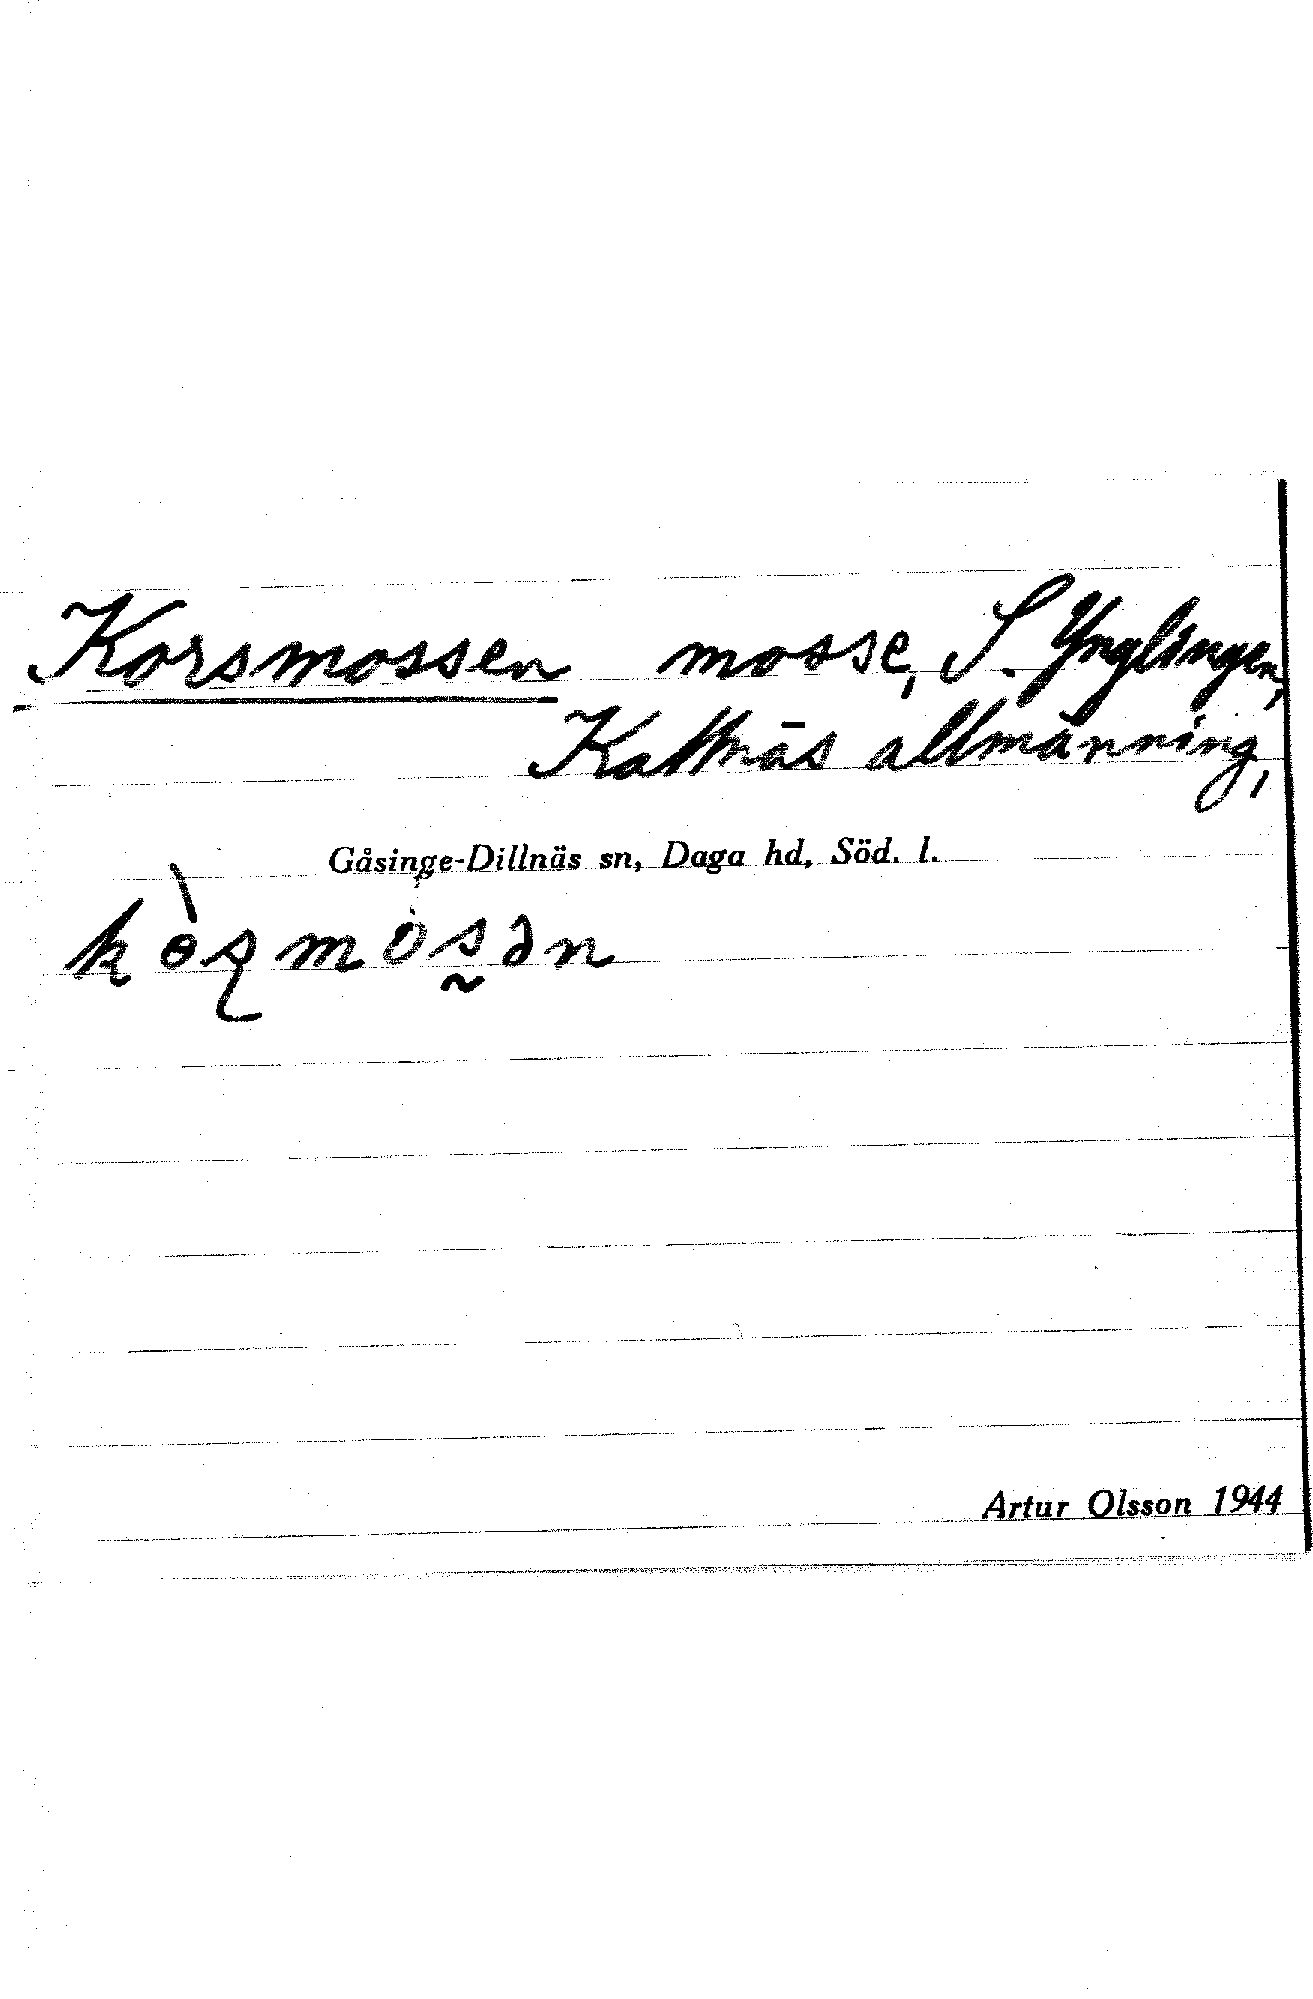 Korsmossen mosse, S. Ynglingen,
Kattnäs allmänning,
Gåsinge-Dillnäs sn, Daga hd, Söd. l.
kɵ̀ʂmòs̰ən
Artur Olsson 1944